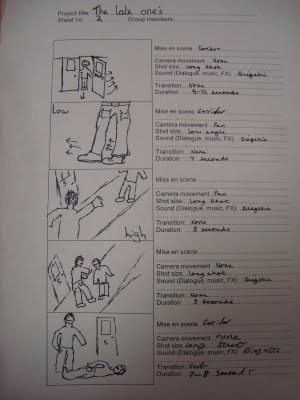 Project title: The late one's
Sheet no: 2 Group members:
Mise en scene: Corridor
Camera movement: None
Shot size: long shot
Sound (Dialogue, music, FX): Diegetic
Transition: None
Duration: 5-10 seconds
Low
Mise en scene: Corridor
Camera movement: Pan
Shot size: low angle
Sound (Dialogue, music, FX): Diegetic
Transition: None
Duration: 7 seconds
high
Mise en scene:
Camera movement: Pan
Shot size: Long Shot
Sound (Dialogue, music, FX): Diegetic
Transition: None
Duration: 8 seconds
5
Mise en scene:
Camera movement: None
Shot size: long shot
Sound (Dialogue, music, FX): Diegetic
Transition: None
Duration: 3 seconds
5
Mise en scene: Corridor
Camera movement: none
Shot size: long
Sound (Dialogue, music, FX): Diegetic
Transition:
Duration: 7-8